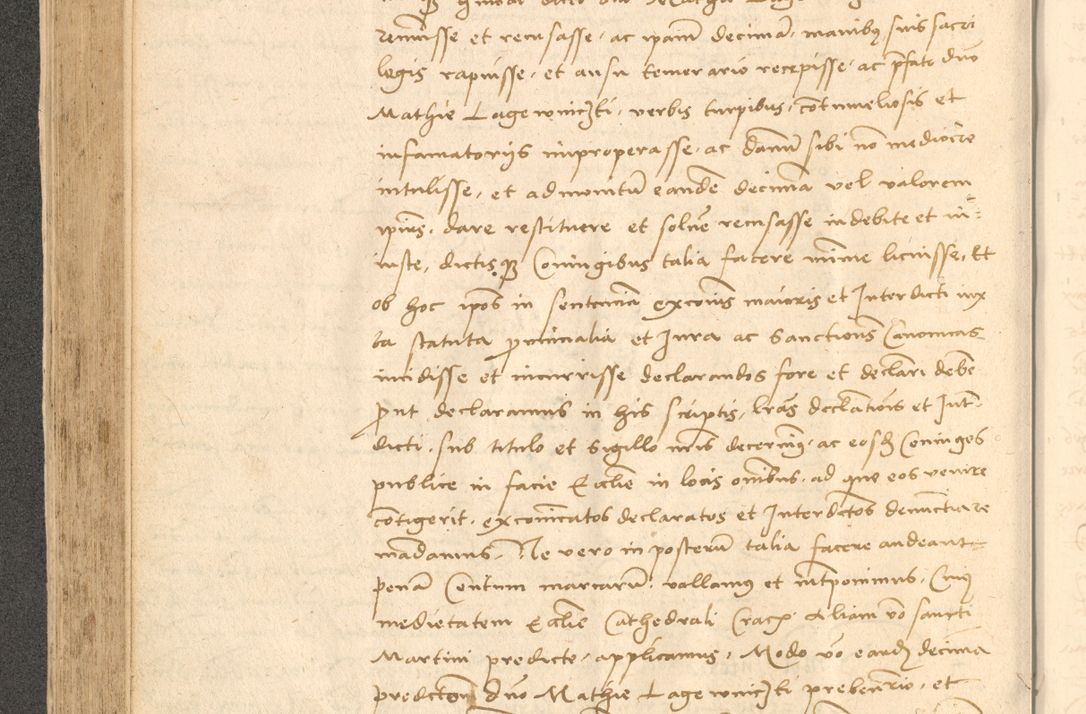 remisse et recusasse, ac ipam decimã, manibus suis sacri
legis rapuisse, et ausu temerario recepisse, ac pfato dno
Mathie Lagewniczki, verbis turpibus, cõtumeliosis et
infamatorijs improperasse, ac damũ sibi nõ mediocre
intulisse, et ad monitũ eandẽ decimã vel valorem
ipius, dare restituere et soluẽ recusasse indebite et in=
iuste, dictisqꝫ Coniugibus talia facere minime licuisse, Et
ob hoc ipos in sententiã excõis maioris et Interdicti iux
ta statuta prouincialia et Jura ac Sanctiones Canonicas
incidisse et incurrisse declarandos fore et declari debẽ
prout declaramus in his scriptis, lrãs declãtiõis et Int̃=
dicti, sub titulo et Sigillo nris decernimꝰ, ac eosdꝫ Coniuges
publice in facie Ecclie in locis omibus, ad que eos venire
cõtigerit, excõicatos declaratos et Interdictos denunciare
mãdamus, Ne vero in posterũ talia facere audeant=
penã Centum marcarũ, vallamꝰ et int̃ponimus, Cuiꝰ
medietatem Ecclie Cathedrali Cracoꝫ aliam vo sancti
Martini predicte, applicamus, Modo vo eandꝫ decimã
predictam dno Mathie Lagewniczki prebẽrio, et